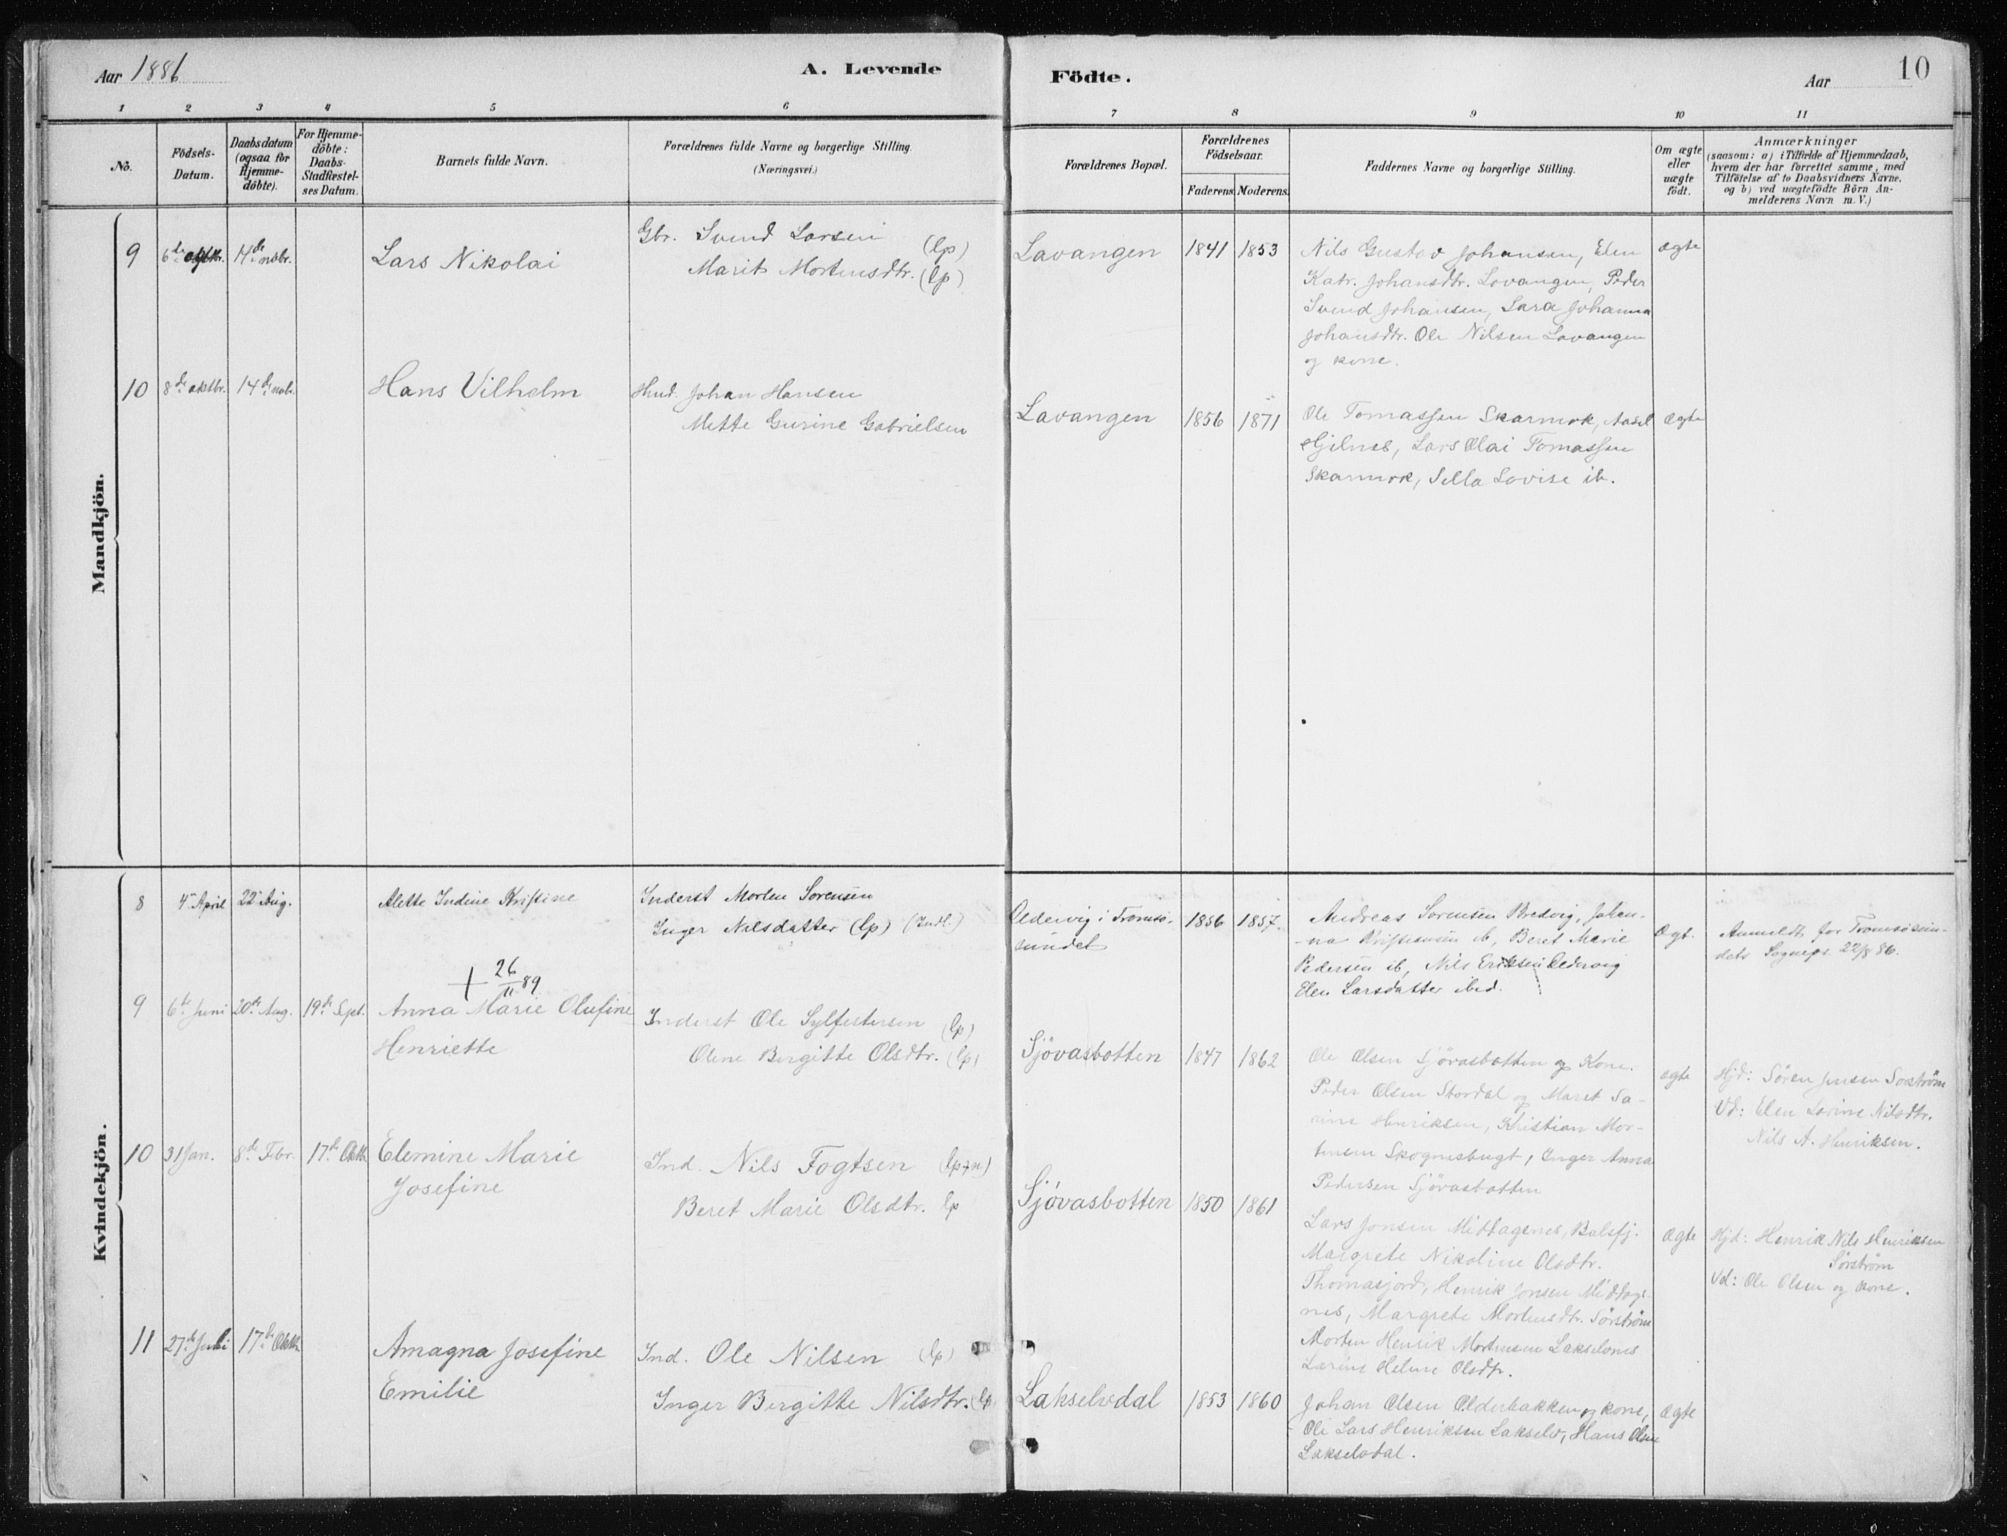 Aar 1886
A. Levende
Födte.
Aar
10
1 2 3 4 5 6 7 8 9 10 11
No.
Födsels-
Datum.
Daabsdatum
(ogsaa for
Hjemme-
döbte).
For Hjemme-
döbte:
Daabs-
Stadfæstel-
ses Datum.
Barnets fulde Navn.
Forældrenes fulde Navne og borgerlige Stilling.
(Næringsvei.)
Forældrenes Bopæl.
Forældrenes
Födselsaar.
Faderens. Moderens.
Faddernes Navne og borgerlige Stilling.
Om ægte
eller
uægte
födt.
Anmærkninger
(saasom: a) i Tilfælde af Hjemmedaab,
hvem der har forrettet samme, med
Tilföielse af to Daabsvidners Navne,
og b) ved uægtefödte Börn An-
melderens Navn m. V.)
Mandkjön.
9 6te oktbr. 14de nobr. Lars Nikolai
Gbr. Svend Larsen (lp)
Marit Mortensdtr. (lp)
Lavangen 1841 1853
Nils Gustav Johansen, Elen
Katr. Johansdtr. Lavangen, Peder
Svend Johansen, Sara Johanna
Johansdtr. Ole Nilsen Lavangen
og kone.
ægte
10 8de oktbr. 14de nobr. Hans Vilhelm
Hmd. Johan Hansen
Mette Gurine Gabrielsen
Lavangen 1856 1871
Ole Tomassen Skarmok, Aasel
Gjilnes, Lars Olai Tomassen
Skarmok, Silla Lovise ib.
ægte
Kvindekjön.
8 4de April 22de Aug. Alette Indine Kristine
Inderst Morten Sorensen
Inger Nilsdatter (lp) (Indl.)
Oldervig i Tromsø-
sundet
1856 1857.
Andreas Sorensen Bredvig, Johan-
na Kristiansen ib, Beret Marie
Pedersen ib, Nils Eriksen Oldervig
Elen Larsdatter ibid.
Ægt.
Anmeldt for Tromsösun-
dets Sognepr. 22/8 86.
+ 26/11 89
9 6te Juni 20de Aug. 19de Sept. Anna Marie Olufine
Henriette
Inderst Ole Sylfestersen (lp)
Olene Birgitte Olsdtr. (lp)
Sjövasbotten 1847 1862
Ole Olsen Sjövasbotten og Kone.
Peder Olsen Stordal og Maret Sa-
rine Henriksen, Kristian Mor-
tensen Skognesbugt, Inger Anna
Pedersen Sjövasbotten
ægte
Hjd: Sören Jensen Sorström
Vd: Elen Larine Nilsdtr.
Nils A. Henriksen.
10 31 Jan. 8de Fbr. 17de Oktb. Elemine Marie
Josefine
Ind. Nils Fogtsen (lp+n)
Beret Marie Olsdtr. lp
Sjövasbotten 1850 1861
Lars Jonsen Middagsnes, Balsfj.
Margrete Nikoline Olsdtr.
Thomasjord, Henrik Jonsen Middags-
nes, Margrete Mortensdtr. Sörström
Morten Henrik Mortensen Lakselvnes
Larine Heline Olsdtr.
ægte
Hjd: Henrik Nils Henriksen
Sörström
Vd: Ole Olsen og kone.
11 27de Juli 17de Oktb. Amagna Josefine
Emilie
Ind. Ole Nilsen (lp)
Inger Birgitte Nilsdtr. (lp)
Lakselvdal 1853 1860
Johan Olsen Olderbakken og kone,
Ole Lars Henriksen Lakselv, Hans Olsen
Lakselvdal.
ægte